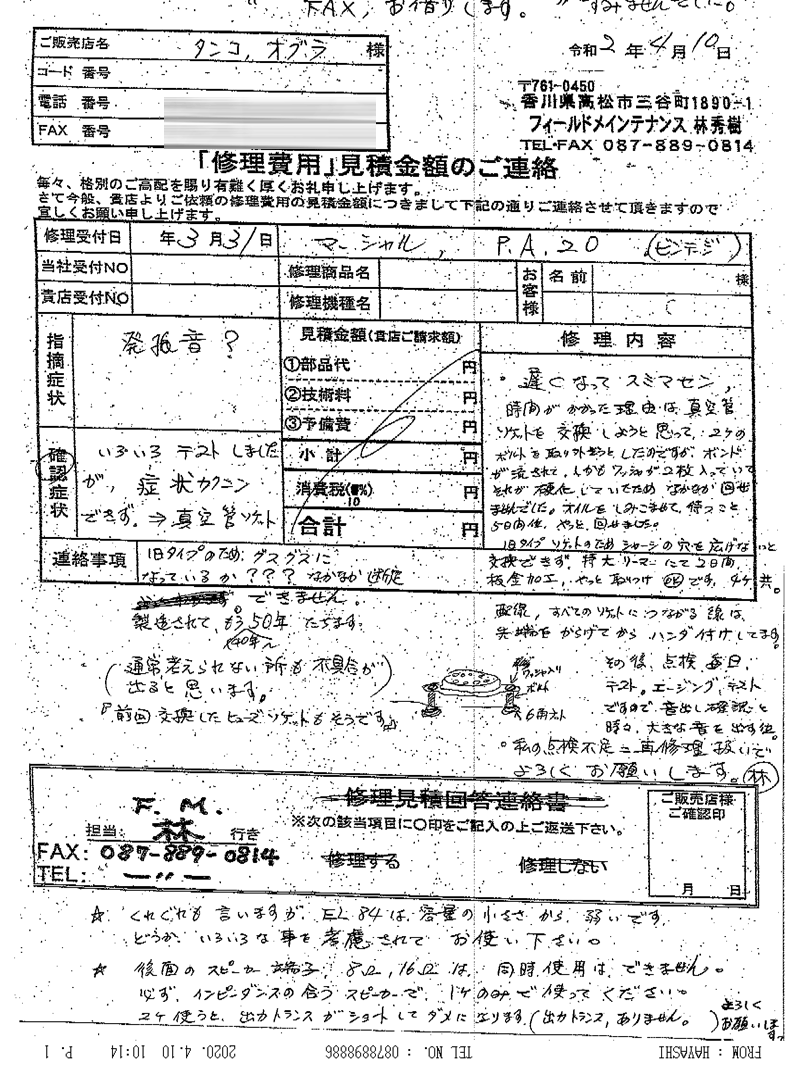 FAX, お借りします。 すみませんでした。
ご販売店名 タンコ, オグラ 様
令和2年4月10日
コード 番号
電話 番号
FAX 番号
〒761-0450
香川県高松市三谷町1890-1
フィールドメインテナンス 林秀樹
TEL・FAX 087-889-0814
「修理費用」見積金額のご連絡
毎々、格別のご高配を賜り有難く厚くお礼申し上げます。
さて今般、貴店よりご依頼の修理費用の見積金額につきまして下記の通りご連絡させて頂きますので
宜しくお願い申し上げます。
修理受付日 年3月31日 マーシャル, P.A.20 (ビンテージ)
当社受付NO 修理商品名 お客様 名前 様
貴店受付NO 修理機種名
指摘症状 発振音?
見積金額(貴店ご請求額)
①部品代 円
②技術料 円
③予備費 円
小計 円
消費税(10%) 円
合計 円
確認症状 いろいろ テストしました
が、症状カクニン
できず。⇒真空管ソケット
修理内容
・遅くなって スミマセン,
時間がかかった理由は、真空管
ソケットを交換しようと思って、2ケの
ボルトを取り外そうとしたのですが、ボンド
が流されて、しかもワッシャが2枚入っていて
それが硬化していたため なかなか回せ
ませんでした。オイルをしみこませて、待つこと
5日間位、やっと、回せました。
旧タイプソケットのためシャーシの穴を広げないと
交換できず。特大リーマーにて2日間、
板金加工、やっと取つけOKです, 4ケ共。
連絡事項 旧タイプのため, グスグスに
なっているか??? なかなか断定
できません。
製造されて、もう50年たちます。
(40年~
(通常考えられない所も不具合が
出ると思います。)
『前回交換したヒューズソケットもそうです』
ワッシャ入り
ボルト
6角ナット
配線, すべてのソケットにつながる線は、
先端をからげてから ハンダ付けしてます。
その後、点検 毎日、
テスト。エージング, テスト
ですので、音出し確認と
時々、大きな音を出す位。
・私の点検不足=再修理扱いで
よろしく お願いします。林
修理見積回答連絡書
F.M.
担当: 林 行き
※次の該当項目に○印をご記入の上ご返送下さい。
FAX: 087-889-0814
TEL: —〃—
修理する 修理しない
ご販売店様
ご確認印
月 日
☆ くれぐれも言いますが, EL84は、容量の小ささから、弱いです。
どうか、いろいろな事を考慮されて お使い下さい。
☆ 後面のスピーカー端子, 8Ω, 16Ωは、同時使用は、できません。
必ず, インピーダンスの合う スピーカーで、1ケのみで使ってください。
2ケ使うと、出力トランスがショートしてダメになります。(出力トランス, ありません。) よろしく
お願いします
FROM : HAYASHI TEL NO. : 0878898886 2020. 4.10 10:14 P. 1